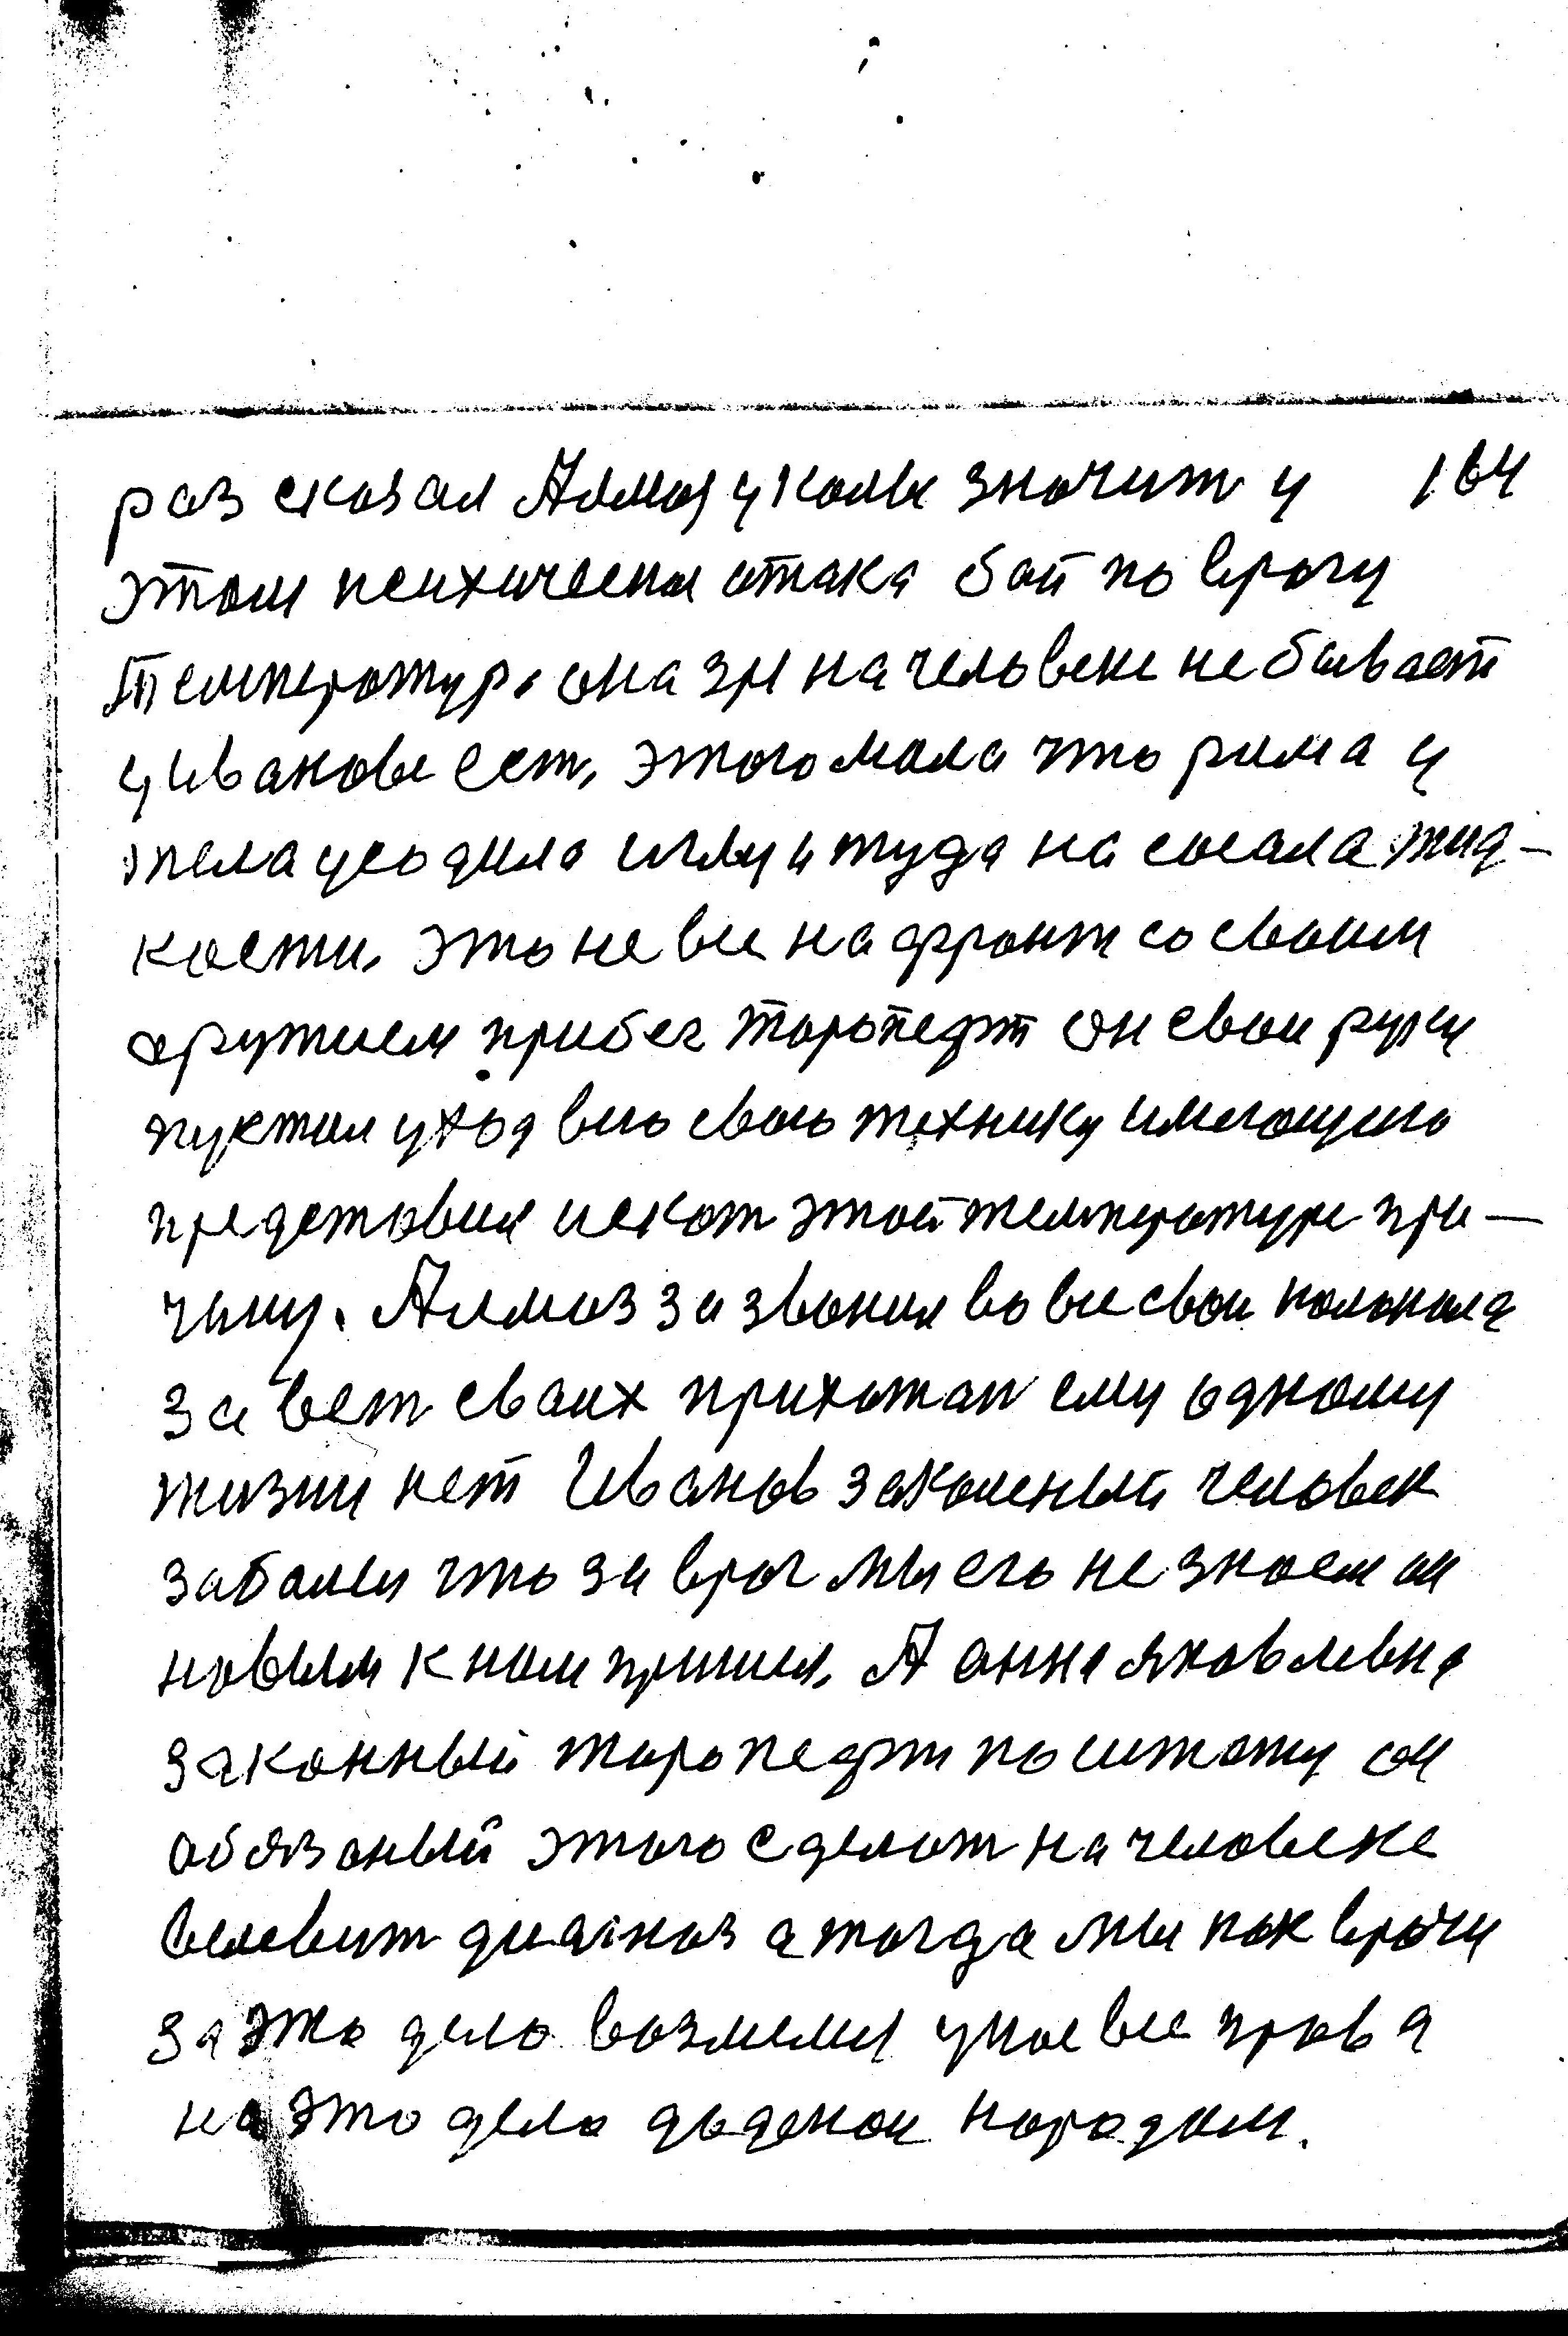 раз сказал Алмаз уколы значит у 164
этом психическая атака бой по врагу
температура она зря на человеке не бывает
у Иванове ест, этого мала что рима у
тела усодила иглу и туда насосала жид-
кости, это не все на фронт со своим
аружием прибег таропефт он свои руки
пуктил уход всю свою технику имеющию
представил искат этой температуре при-
чину. Алмаз зазвонил во все свои колокола
завет своих прихожан ему одному
жизни нет Иванов закаленый человек
заболел что за враг мы его не знаем он
новым к нам пришел, А анна яковлевна
законный таропефт поитому он
обязаный этого сделат на человеке
вылевит диагноз а тогда мы как врачи
за это дело возмемся у нас все права
на это дело даденои народам.